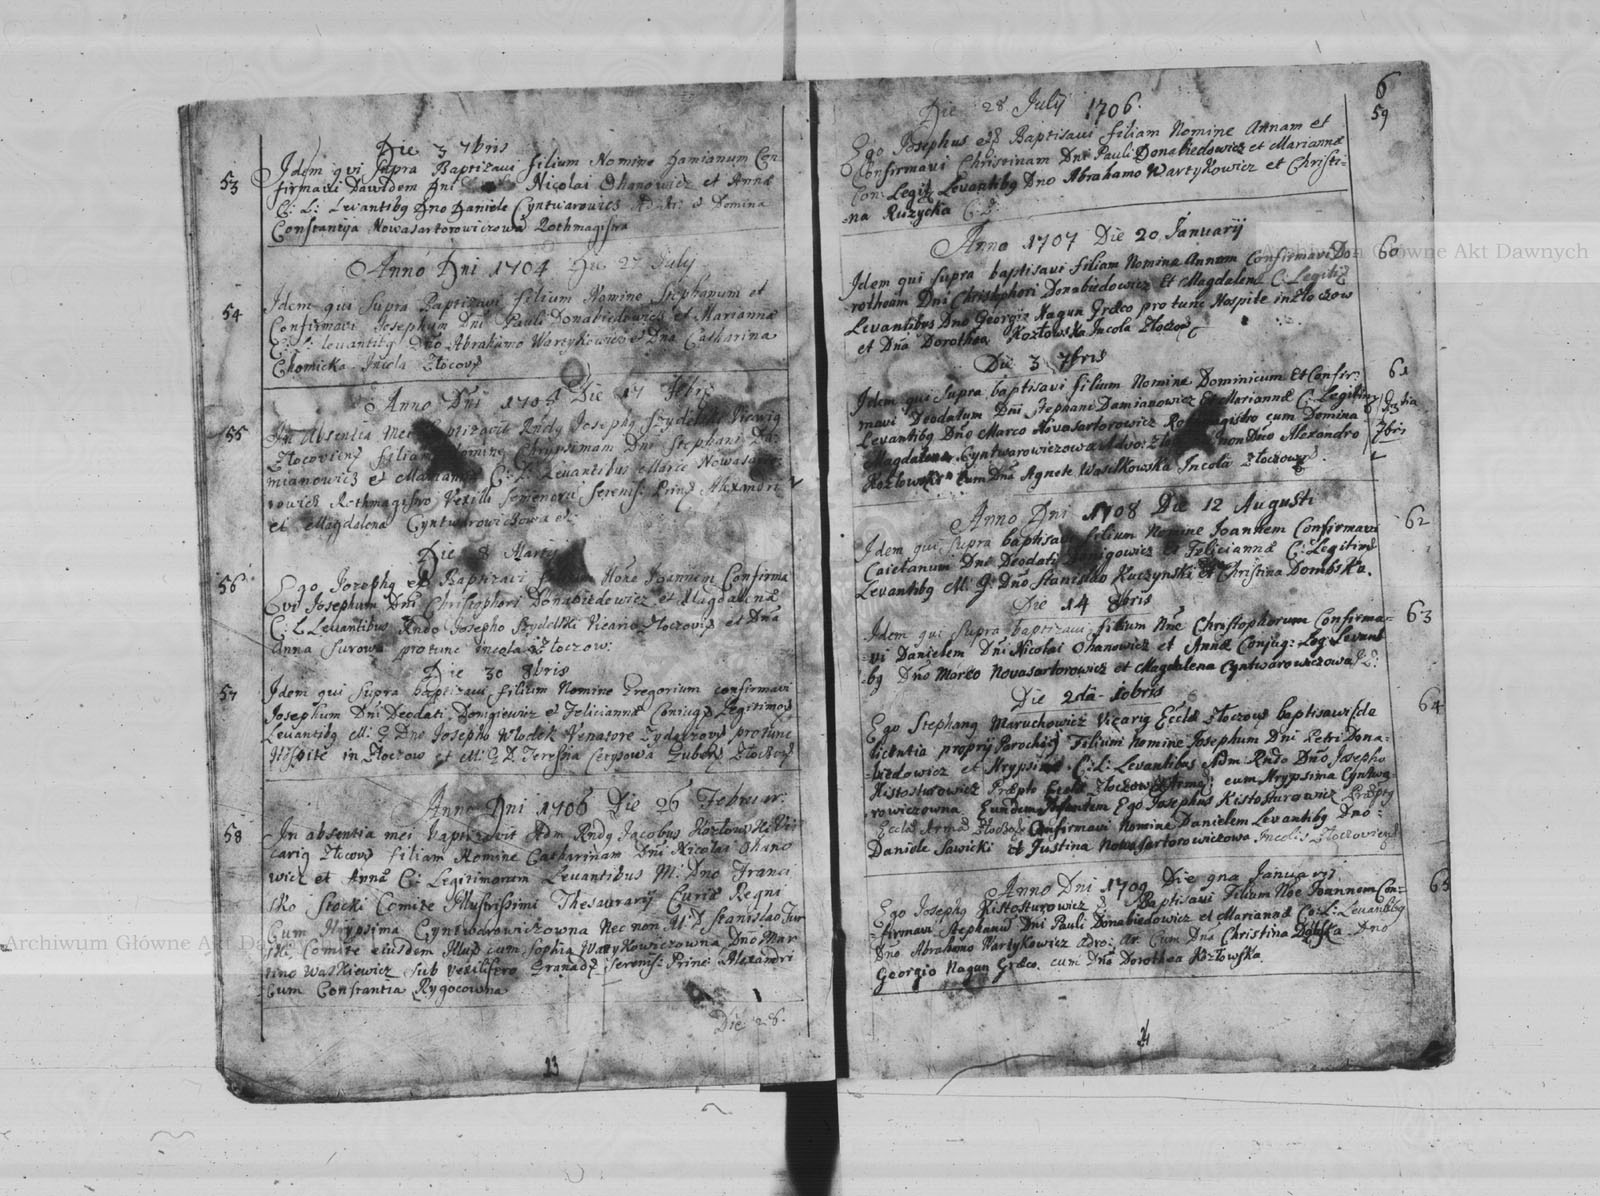 Die 3 7bris
53
Idem qvi supra Baptizavi filium Nomine Damianum Con-
firmavi Dawidem Dni Nicolai Ohanowicz et Annæ
C: L: Levantibq Dno Daniele Cyntwarowicz et Domina
Constantija Nowasartorowiczowa Rothmagistra
Anno Dni 1704 Die 27 July
54
Idem qui Supra Baptizavi filium Nomine Stephanum et
Confirmavi Josephum Dni Pauli Donabiedowicz et Mariannæ
C: L: levantibq Dno Abrahamo Wartykowicz et Dna Catharina
Chomicka Incola Złocov
Anno Dni 1705 Die 17 febr
55
In Absentia Mei baptizavit Rndq Josephq Szydelski Vicariq
Złocoviens filiam Nomine Hrypsimam Dni Stephani Da-
mianowicz et Mariannæ C: L: Levantibus Marco Nowasarto
rowicz Rothmagistro Vexilli Serenis: Prin Alexandri
et Magdalena Cyntwarowiczowa
Die 8 Martij
56
Ego Josephq Baptizavi Noīe Joannem Confirma
vi Josephum Dni Christophori Donabiedowicz et Magdalenæ
C: L Levantibus Rndo Josepho Szydelski Vicario Złoczovis et Dna
Anna Surowa protunc incola Złoczow:
Die 30 8bris
57
Idem qui Supra baptizavi filium Nomine Gregorium confirmavi
Josephum Dni Deodati et Feliciannæ Coniug Legitimor
Levantibq M: G: Dno Josepho Wlodek Venatore Zydaczov protunc
Hospite in Złoczow et M: G: D. Teressia
Anno Dni 1706 Die 26 Februar:
58
In absentia mei baptizavit Adm Rndq Jacobus Kozłowski Vi
cariq Złocov filiam Nomine Catharinam Dni Nicolai Ohano
wicz et Annæ C: Legitimorum Levantibus M: Dno Franci
sko Stocki Comite Illustrissimi Thesaurarij Curiæ Regni
Cum Hrypsima Cyntwarowiczowna Nec non M: D Stanislao
Comite eiusdem Illus cum Sophia Wartykowiczowna Dno Mar
tino Waskiewicz Sub vexilifero Granad Serenis: Princ: Alexandri
Cum Constantia Rygocowna
Die 28.
13
6
Die 28 July 1706.
59
Ego Josephus Baptisavi filiam Nomine Annam et
Confirmavi Christinam Dni Pauli Donabiedowicz et Mariannæ
Con: Legit Levantibq Dno Abrahamo Wartykowicz et Christi-
-na Ruzycka C: Z:
Anno 1707 Die 20 Januarij
60
Idem qui Supra baptisavi filiam Nomine Annam Confirmavi Do
rotheam Dni Christophori Donabiedowicz et Magdalenæ C: Legitim
Levantibus Dno Georgio Nagun Græco pro tunc Hospite in Złoczow
et Dna Dorothea Kozłowska Incola Złoczow
Die 3 7bris
61
Idem qui Supra baptisavi filium Nomine Dominicum Et Confir-
mavi Deodatum Dni Stephani Damianowicz et Mariannæ C: Legitim
Levantibq Dno Marco Novasartorowicz Rothmagistro cum Domina
Magdalena Cyntwarowiczowa Advo: Zło non Dno Alexandro
Kozłowski cum Dna Agnete Wasilkowska Incola Złoczow
7bris
Anno Dni 1708 Die 12 Augusti
62
Idem qui Supra baptisavi filium Nomine Joannem Confirmavi
Caietanum Dni Deodati et Feliciannæ C: Legitim
Levantibq M: G: Dno Stanislao Kuczynski et Christina Dombska.
Die 14 8bris
63
Idem qui Supra baptizavi filium Nne Christophorum Confirma-
vi Danielem Dni Nicolai Ohanowicz et Annæ Conjug: Leg: Levant
bq Dno Marco Novasartorowicz et Magdalena Cyntwarowiczowa
Die 2da 10bris
64
Ego Stephanq Maruchowicz Vicariq Eccle Złoczov baptisavi de
licentia proprij Parochi Filium Nomine Josephum Dni Petri Dona-
biedowicz et Hrypsimæ C: L: Levantibus Adm: Rndo Dno Josepho
Kistosturowicz Præpto Eccle Złoczow Arme: cum Hrypsima Cyntwa
rowiczowna Eundem Infantem Ego Josephus Kistosturowicz Præptq
Eccle Armæ Złoczov Confirmavi Nomine Danielem Levantibq Dno-
Daniele Sawicki et Justina Nowasartorowiczowa Incolis Złoczoviens
Anno Dni 1709 Die 9na Januarij
65
Ego Josephq Kistosturowicz Baptisavi Filium Noe Joannem Con-
firmavi Stephanum Dni Pauli Donabiedowicz et Mariannæ Co: L: Levantibq
Dno Abrahamo Wartykowicz Advo: Ar. Cum Dna Christina Dno
Georgio Nagun Græco. cum Dna Dorothea Kozłowska.
Archiwum Główne Akt Dawnych
Archiwum Główne Akt Dawnych